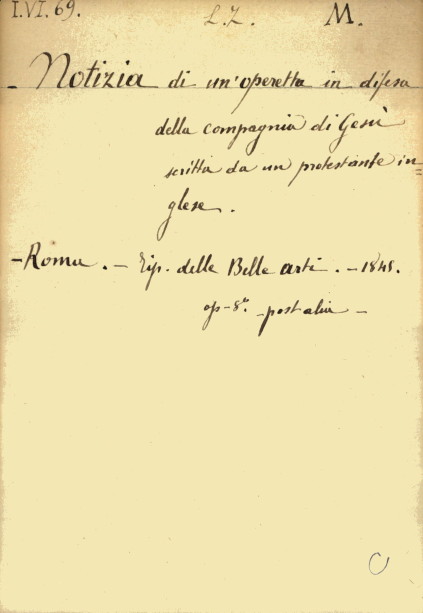 I.VI.69. L.Z. M.
- Notizia di un'operetta in difesa
della compagnia di Gesù
scritta da un protestante in=
glese.
- Roma. - Tip. delle Belle arti. - 1845.
op - 8.° - post alia -
C